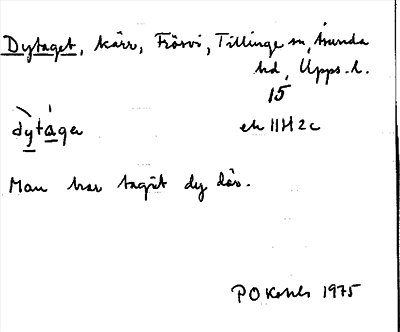 Dytaget, kärr, Frösvi, Tillinge sn, Åsunda
hd, Upps. l.
15
dytaga
ek 11H2c
Man har tagit dy där.
P O 1975